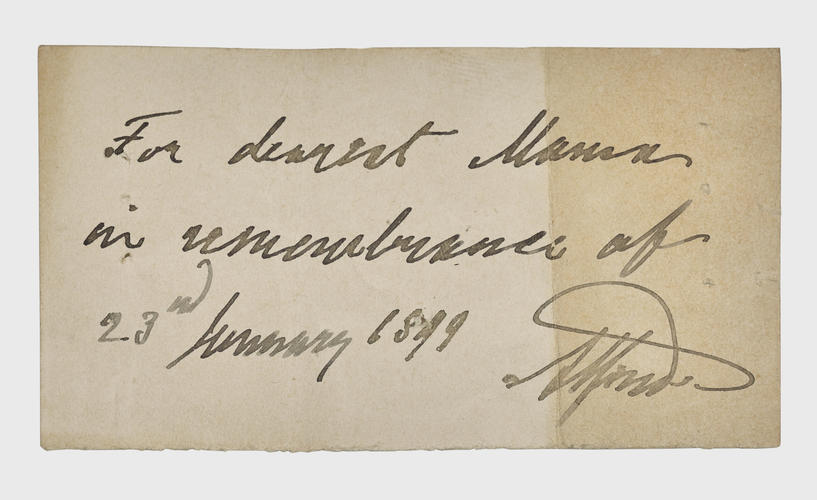 For dearest Mama
in remembrance of
23rd January 1899
Alfred